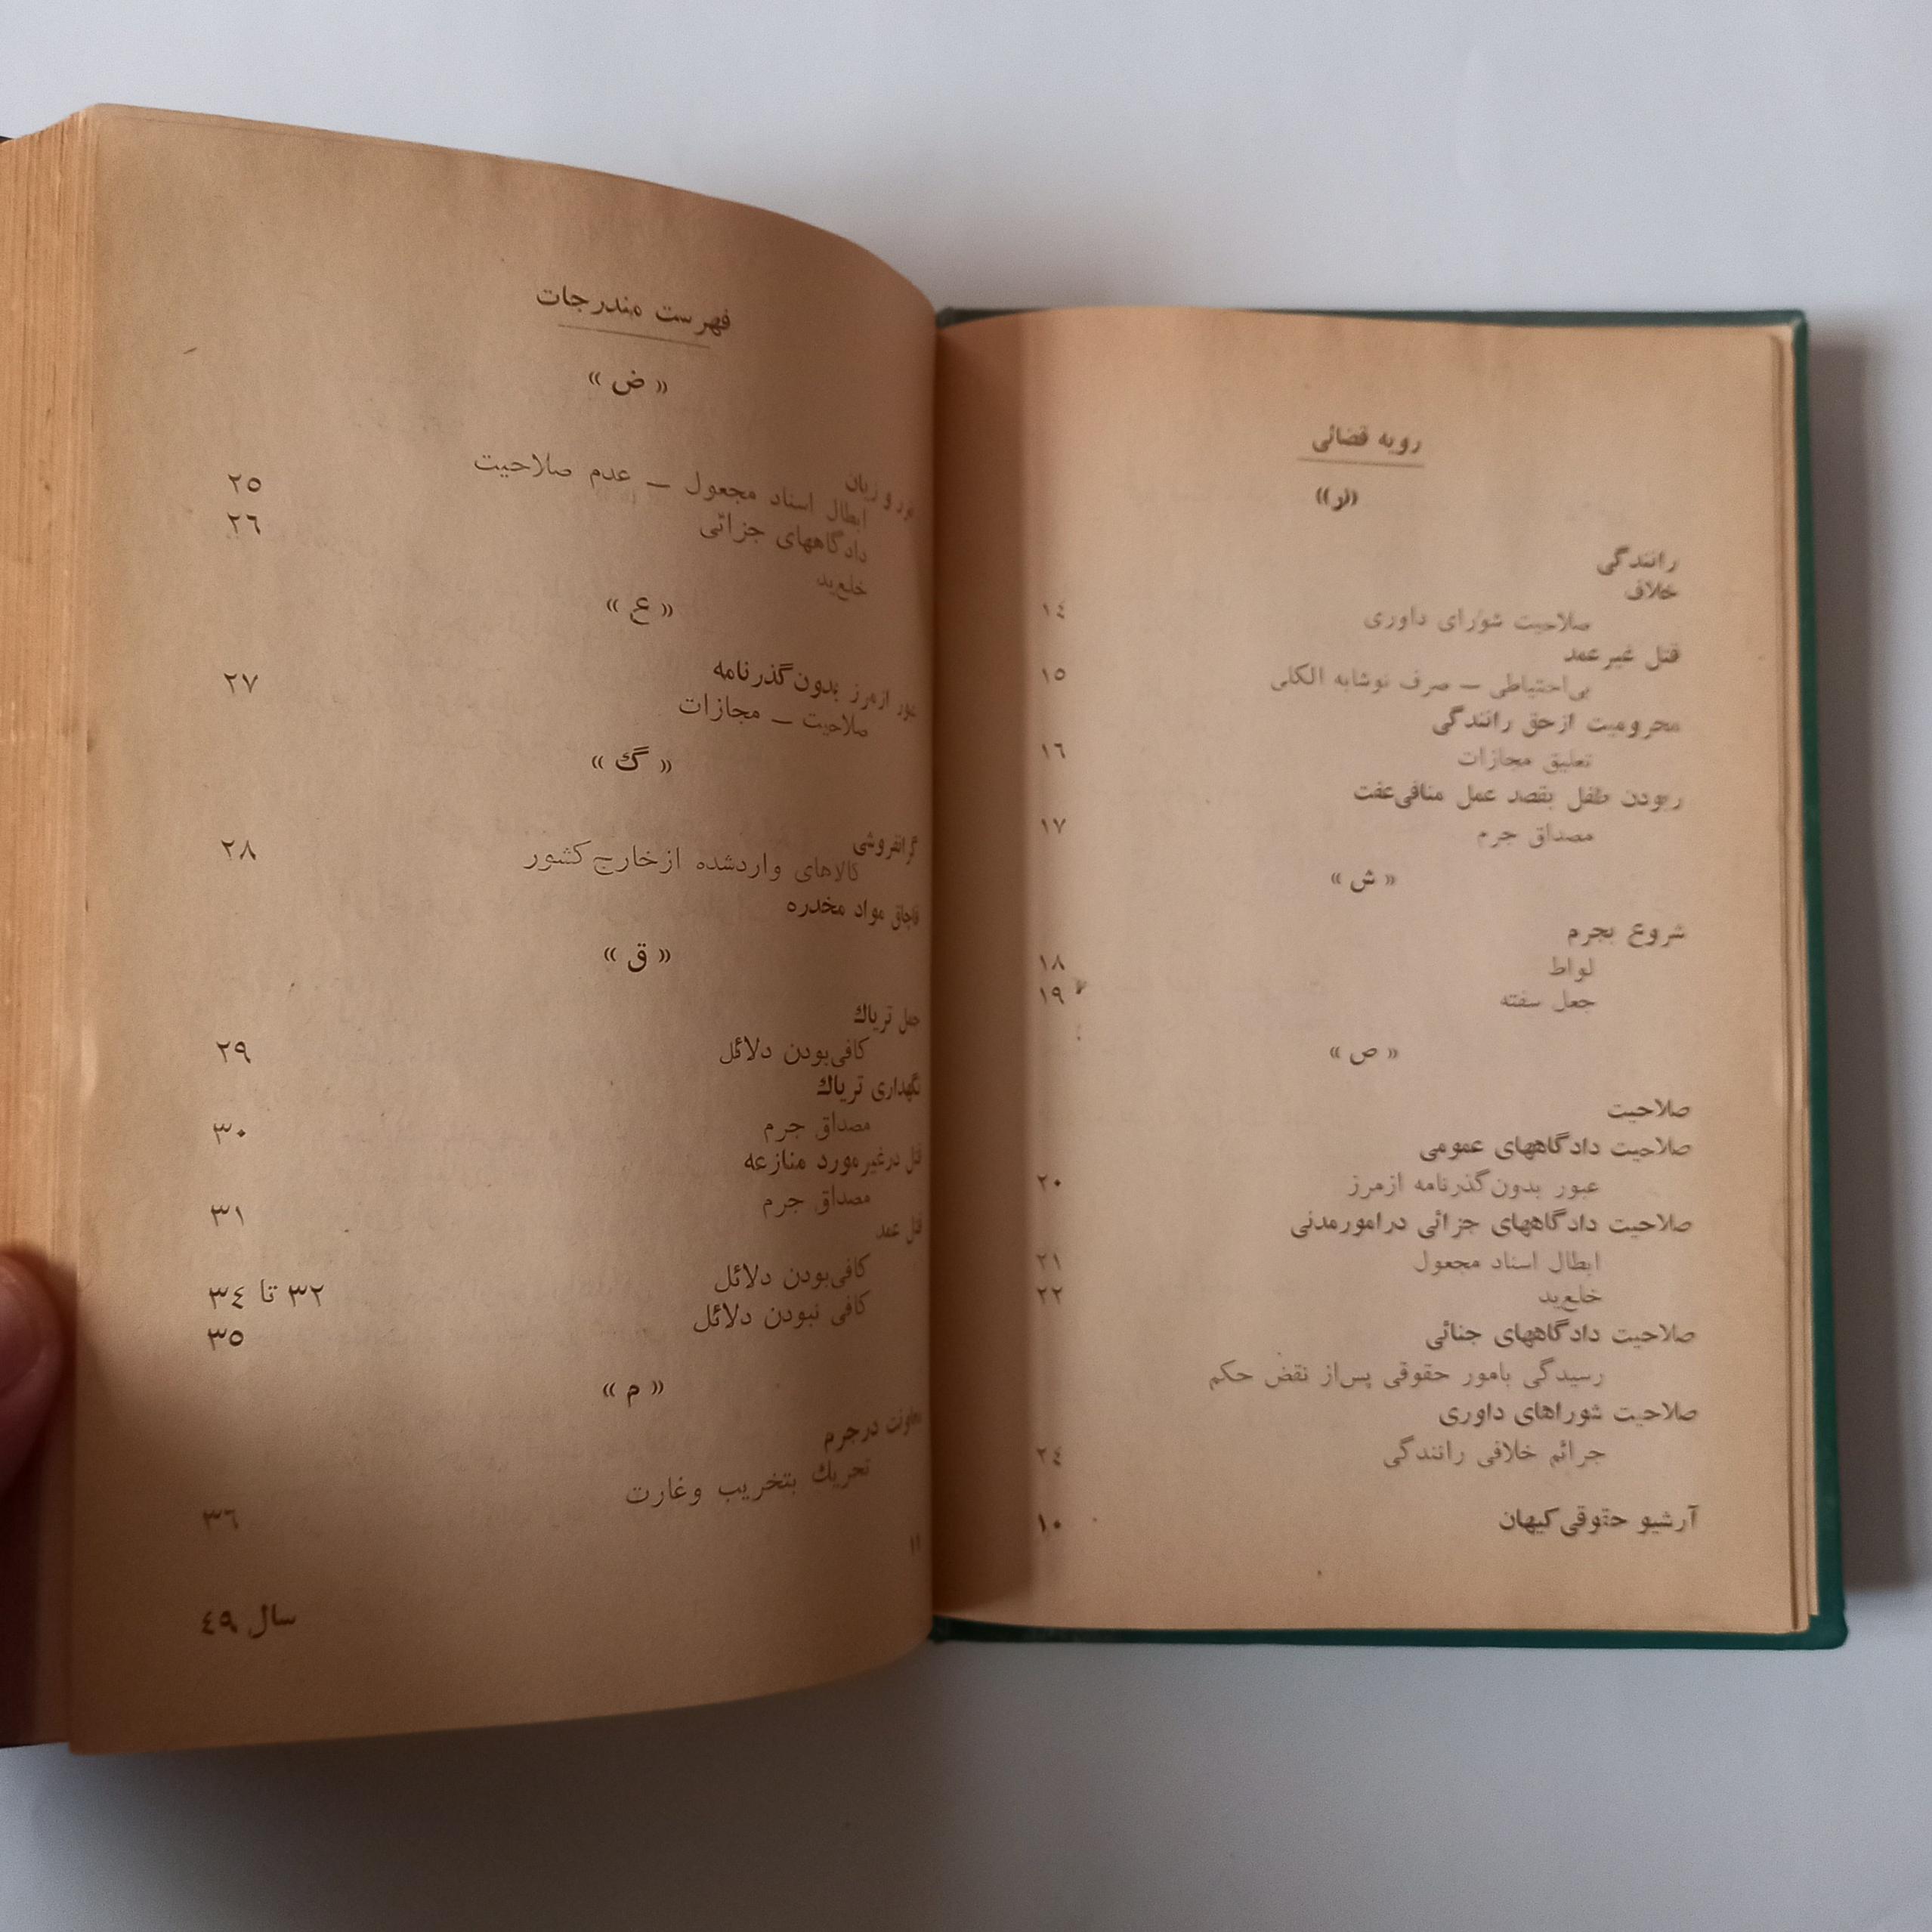 رویه قضائی
«ر»
رانندگی
خلاف
صلاحیت شورای داوری ۱٤
قتل غیرعمد
بی‌احتیاطی – صرف نوشابه الکلی ۱٥
محرومیت ازحق رانندگی
تعلیق مجازات ۱٦
ربودن طفل بقصد عمل منافی‌عفت
مصداق جرم ۱۷
« ش »
شروع بجرم
لواط ۱۸
جعل سفته ۱۹
« ص »
صلاحیت
صلاحیت دادگاههای عمومی
عبور بدون‌گذرنامه ازمرز ۲۰
صلاحیت دادگاههای جزائی درامورمدنی
ابطال اسناد مجعول ۲۱
خلع‌ید ۲۲
صلاحیت دادگاههای جنائی
رسیدگی بامور حقوقی پس‌از نقض حکم
صلاحیت شوراهای داوری
جرائم خلافی رانندگی ۲٤
آرشیو حقوقی‌کیهان ۱۰
فهرست مندرجات
« ض »
و زیان
ابطال اسناد مجعول – عدم صلاحیت ۲٥
دادگاههای جزائی ۲٦
خلع‌ید
« ع »
ازمرز بدون‌گذرنامه
صلاحیت – مجازات ۲۷
« گ »
گرانفروشی
کالاهای واردشده ازخارج‌کشور ۲۸
قاچاق مواد مخدره
« ق »
حمل تریاك
کافی‌بودن دلائل ۲۹
نگهداری تریاك
مصداق جرم ۳۰
قتل درغیرمورد منازعه
مصداق جرم ۳۱
قتل عمد
کافی‌بودن دلائل ۳۲ تا ۳٤
کافی نبودن دلائل ۳٥
« م »
معاونت درجرم
تحریك بتخریب وغارت ۳٦
۱۱
سال ٤۹